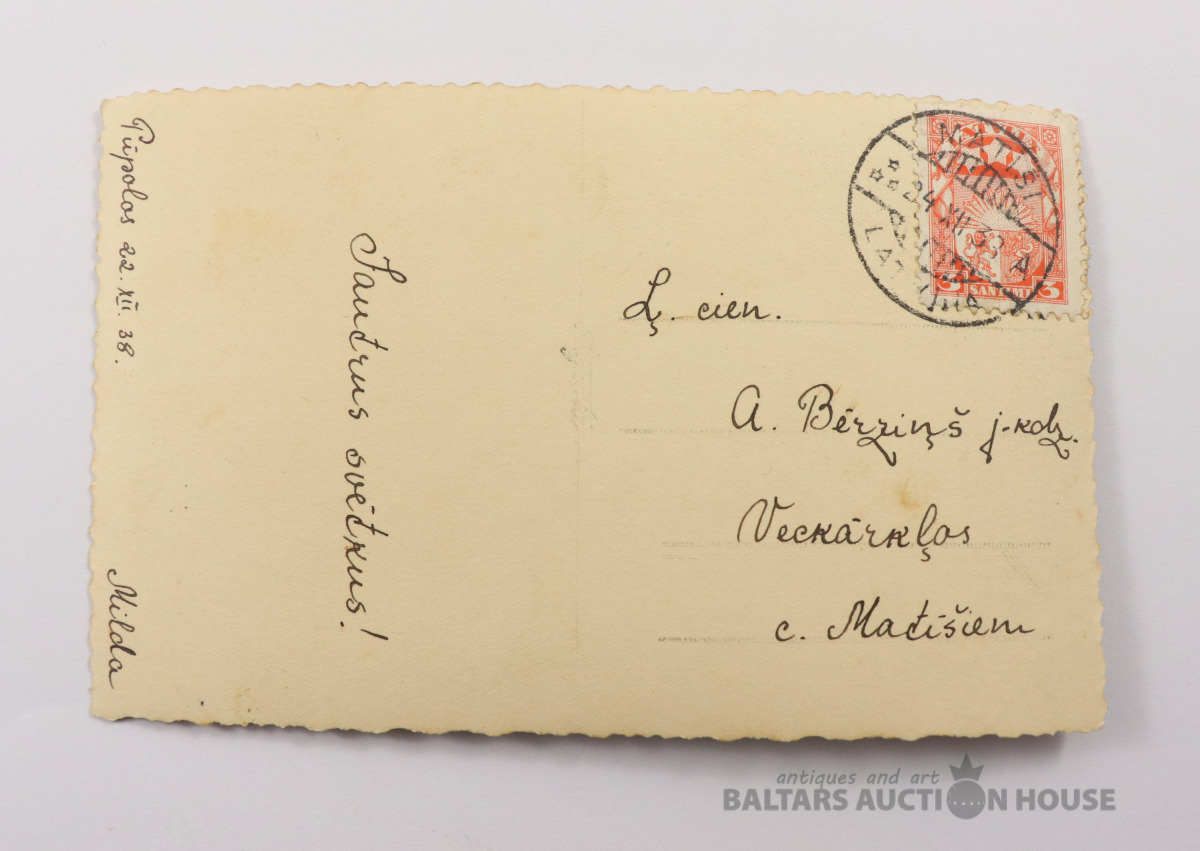 Pūpolos 22. XII. 38.
Milda
Jautrus svētkus!
Ļ. cien.
A. Bērziņš j-kdz.
Veckārkļos
c. Matīšiem
MATĪŠI
24 XII 38 A
LATVIJA
3 SANTIMI 3
antiques and art
BALTARS AUCTION HOUSE